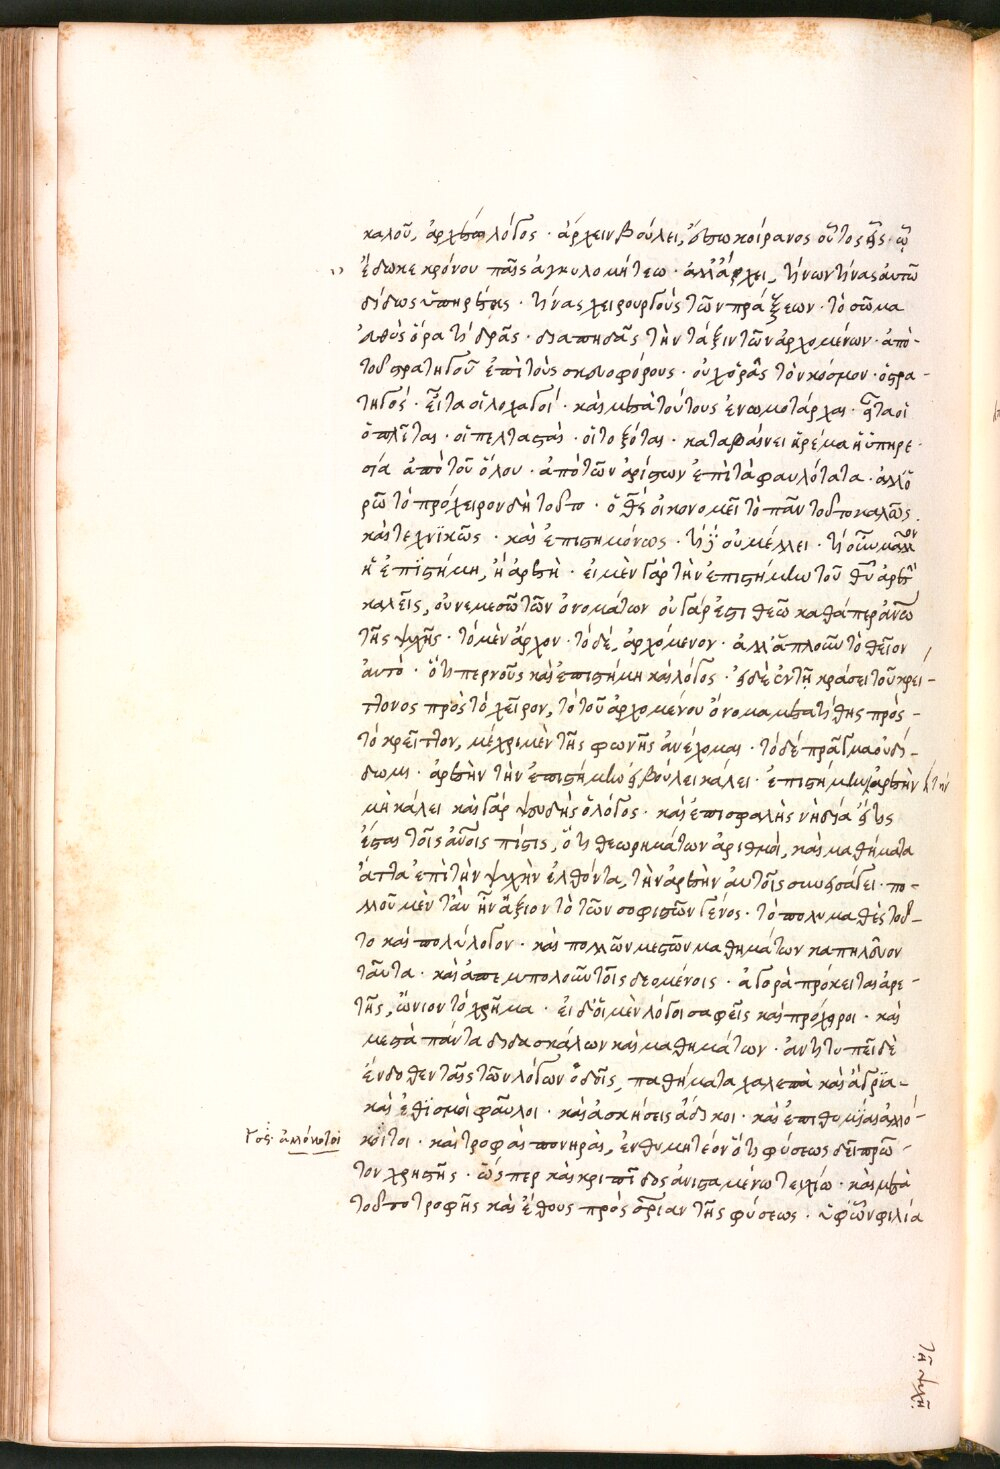 καλοῦ, ἀρχέτω λόγος · ἄρχειν βούλει, ἔστω κοίρανος οὗτος εἷς · ᾧ
ἔδωκε κρόνου παῖς ἀγκυλομήτεω · ἀλλ' ἄρχει, τίνων τίνας αὐτῷ
δίδως ὑπηρέτας · τίνας χειρουργοὺς τῶν πράξεων · τὸ σῶμα
εὐθὺς ὅρα τί δρᾶς · διαπηδᾶς τὴν τάξιν τῶν ἀρχομένων · ἀπὸ
τοῦ στρατηγοῦ ἐπὶ τοὺς σκευοφόρους · οὐχ ὁρᾶς τὸν κόσμον · ὁ στρα-
τηγός · εἶτα οἱ λοχαγοί · καὶ μετὰ τούτους ἐνωμοτάρχας · εἶτα οἱ
ὁπλῖται · οἱ πελτασταί · οἱ τοξόται · καταβαίνει ἠρέμα ἡ ὑπηρε-
σία ἀπὸ τοῦ ὅλου · ἀπὸ τῶν ἀρίστων ἐπὶ τὰ φαυλότατα · ἀλλ' ὁ
ρῶ τὸ πρόχειρον δὴ τοῦτο · ὁ θεὸς οἰκονομεῖ τὸ πᾶν τοῦτο καλῶς
καὶ τεχνϊκῶς · καὶ ἐπιστημόνως · τί γὰρ οὐ μέλλει · τί οὖν μᾶλλον
ἢ ἐπϊστήμη, ἢ ἀρετὴ · εἰ μὲν γὰρ τὴν ἐπιστήμην τοῦ θεοῦ ἀρετὴν
καλεῖς, οὐ νεμεσῶ τῶν ὀνομάτων οὐ γάρ ἐστι θεῶ καθάπερ ἀνθρώπω
τῆς ψυχῆς · τὸ μὲν ἄρχον · τὸ δέ, ἀρχόμενον · ἀλλ' ἁπλοῦν τὸ θεῖον
αὐτὸ · ὅτι περ νοῦς καὶ ἐπιστήμη καὶ λόγος · εἰ δὲ ἐν τῇ κράσει τοῦ κρεί-
ττονος πρὸς τὸ χεῖρον, τὸ τοῦ ἀρχομένου ὄνομα μετατίθης πρὸς
τὸ κρεῖττον, μέχρι μὲν τῆς φωνῆς ἀνέχομαι · τὸ δέ πρᾶγμα οὐ δί-
δωμι · ἀρετὴν τὴν ἐπιστήμην εἰ βούλει κάλει · ἐπιστήμην ἀρετὴν τὴν
μὴ κάλει καὶ γάρ ψευδὴς ὁ λόγος · καὶ ἐπισφαλὴς νὴ δία εἴ τις
ἔσται τοῖς αὐτοῖς πίστις, ὅτι θεωρημάτων ἀριθμοὶ, καὶ μαθήματα
ἄττα ἐπὶ τὴν ψυχὴν ἐλθόντα, τὴν ἀρετὴν αὐτοῖς συνεισάγει · πο-
λλοῦ μὲν τἂν ἦν ἄξιον τὸ τῶν σοφιστῶν γένος · τὸ πολυμαθὲς τοῦ-
το καὶ πολύλογον · καὶ πολλῶν μεστῶν μαθημάτων καπηλεῦον
ταῦτα · καὶ ἀπεμπολοῦν τοῖς δεομένοις · ἀγορὰ πρόκειται ἀρε-
τῆς, ὤνιον τὸ χρῆμα · εἰ δ' οἱ μὲν λόγοι σαφεῖς καὶ πρόχειροι · καὶ
μεστὰ πάντα διδασκάλων καὶ μαθημάτων · ἀντιτυπεῖ δὲ
ἔνδοθεν ταῖς τῶν λόγων ὁδοῖς, παθήματα χαλεπὰ καὶ ἄγρϊα
καὶ ἐθϊσμοὶ φαῦλοι · καὶ ἀσκήσεις ἄδικοι · καὶ ἐπιθυμίαι ἀλλό-
Γρ. ἀλλόκοτοι κοτοι · καὶ τροφαὶ πονηραὶ, ἐνθυμητέον ὅτι φύσεως δεῖ πρῶ-
τον χρηστῆς · ὥσπερ καὶ κρηπῖδος ἀνισταμένω τειχίω · καὶ μετὰ
τοῦτο τροφῆς καὶ ἔθους πρὸς σωτηρίαν τῆς φύσεως · ὑφ' ὧν φιλία
τῇ ψυχῇ